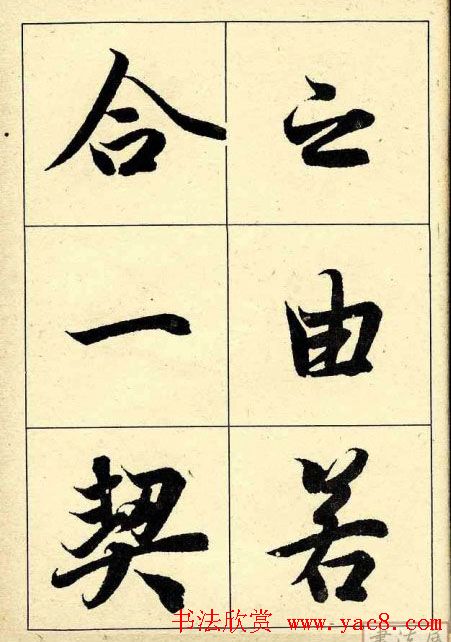 之由若
合一契
书法欣赏 www.yac8.com